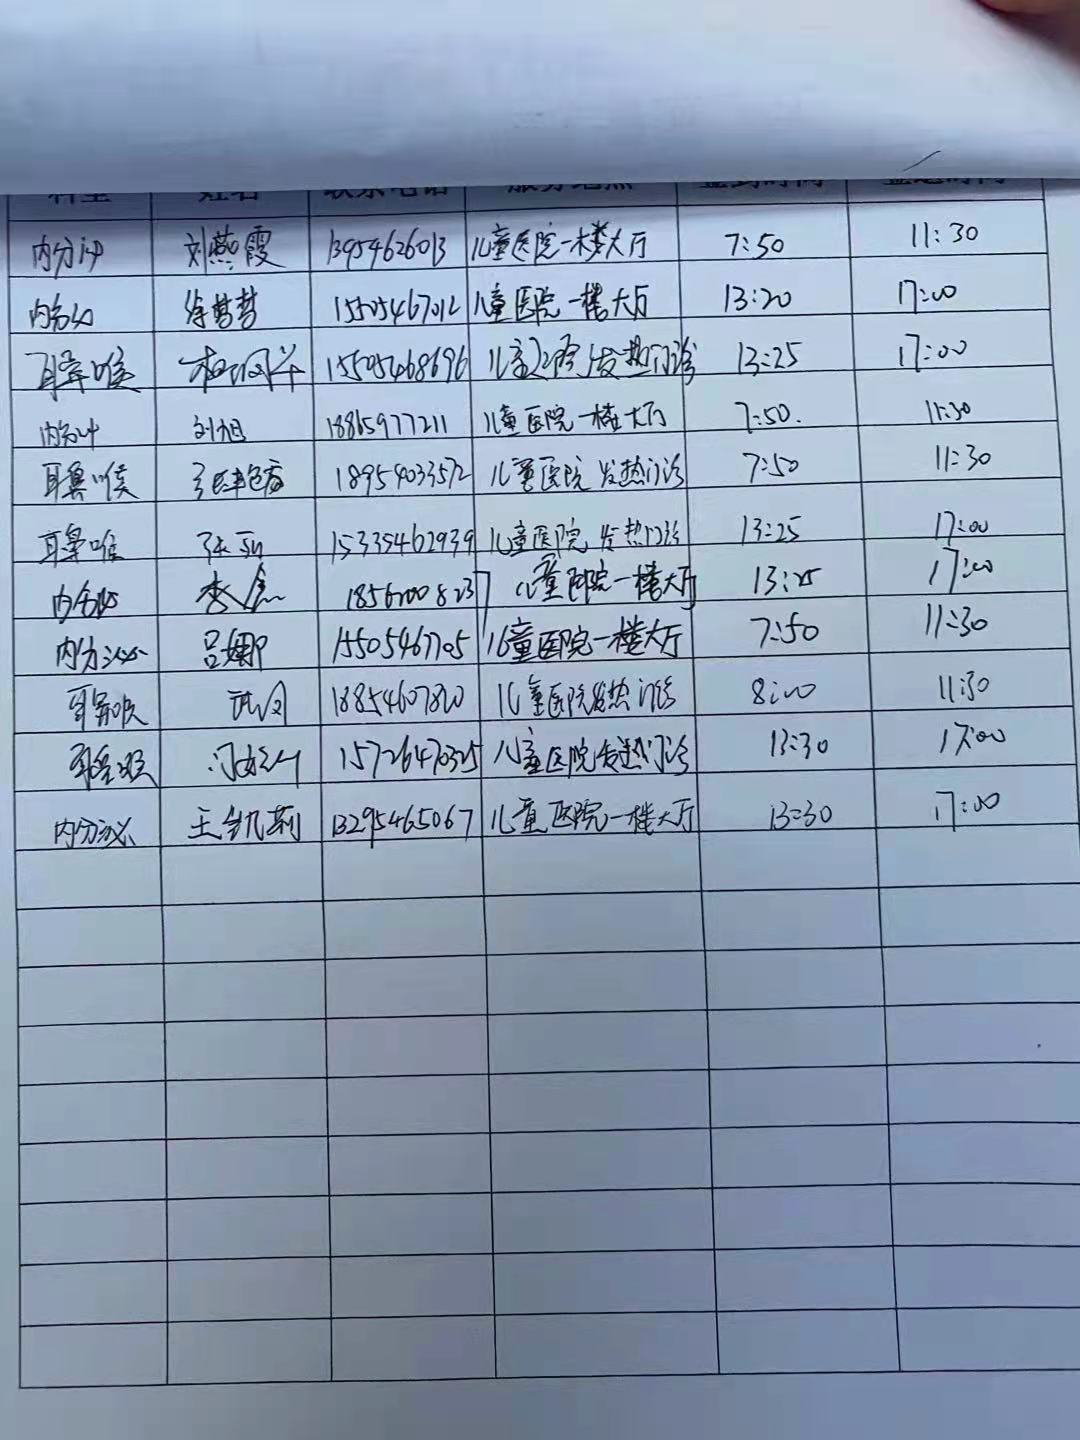 科室 姓名 联系电话 服务地点 签到时间 签退时间
内分泌 刘燕霞 13954626013 儿童医院一楼大厅 7:50 11:30
内分泌 徐梦梦 15505467012 儿童医院一楼大厅 13:20 17:00
耳鼻喉 15505468696 儿童医院发热门诊 13:25 17:00
内分泌 刘旭 18865977211 儿童医院一楼大厅 7:50. 11:30
耳鼻喉 18954033572 儿童医院 发热门诊 7:50 11:30
耳鼻喉 15335462939 儿童医院 发热门诊 13:25 17:00
内分泌 李 18562008237 儿童医院一楼大厅 13:25 17:00
内分泌 吕娜 15505467705 儿童医院一楼大厅 7:50 11:30
耳鼻喉 18854607820 儿童医院发热门诊 8:00 11:30
耳鼻喉 15726470325 儿童医院发热门诊 13:30 17:00
内分泌 王凯莉 13295465067 儿童医院一楼大厅 13:30 17:00